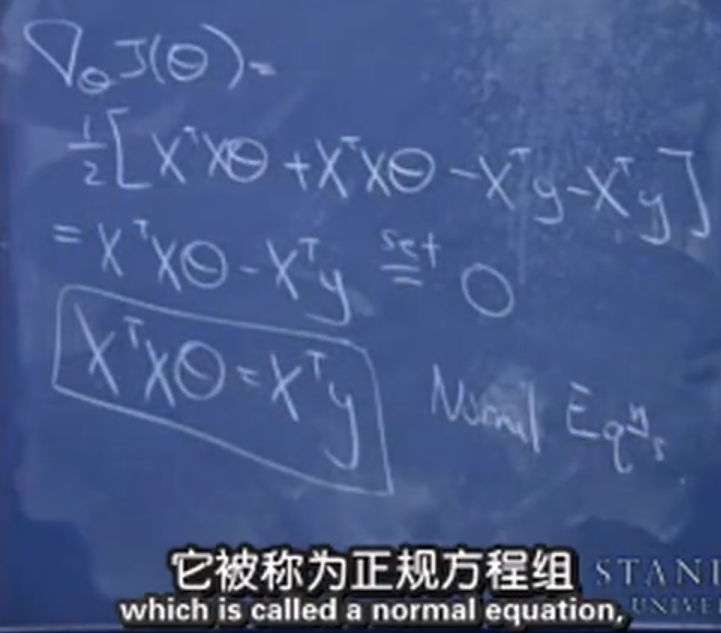 ∇_θ J(θ) =
½[XᵀXθ + XᵀXθ − Xᵀy − Xᵀy]
= XᵀXθ − Xᵀy set= 0
XᵀXθ = Xᵀy
Normal Eqⁿs
它被称为正规方程组
STANF
which is called a normal equation,
UNIVE